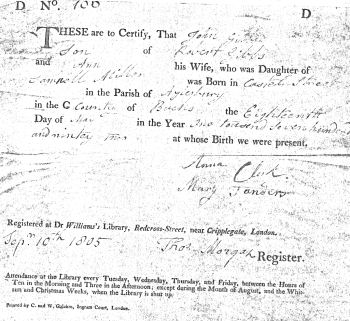 D No. 106 D
THESE are to Certify, That John Gibbs
Son of Robert Gibbs
and Ann his Wife, who was Daughter of
Samuell Miller was Born in Castle Street
in the Parish of Aylesbury
in the C County of Bucks the Eighteenth
Day of May in the Year One Thousand Seven hundred
and ninty two at whose Birth we were present,
Anna Clark
Mary Sanders
Registered at Dr Williams's Library, Redcross-Street, near Cripplegate, London.
Sepr. 10th 1805 Thos Morgan Register.
Attendance at the Library every Tuesday, Wednesday, Thursday, and Friday, between the Hours of
Ten in the Morning and Three in the Afternoon; except during the Month of August, and the Whit-
sun and Christmas Weeks, when the Library is shut up.
Printed by C. and W. Galabin, Ingram Court, London.